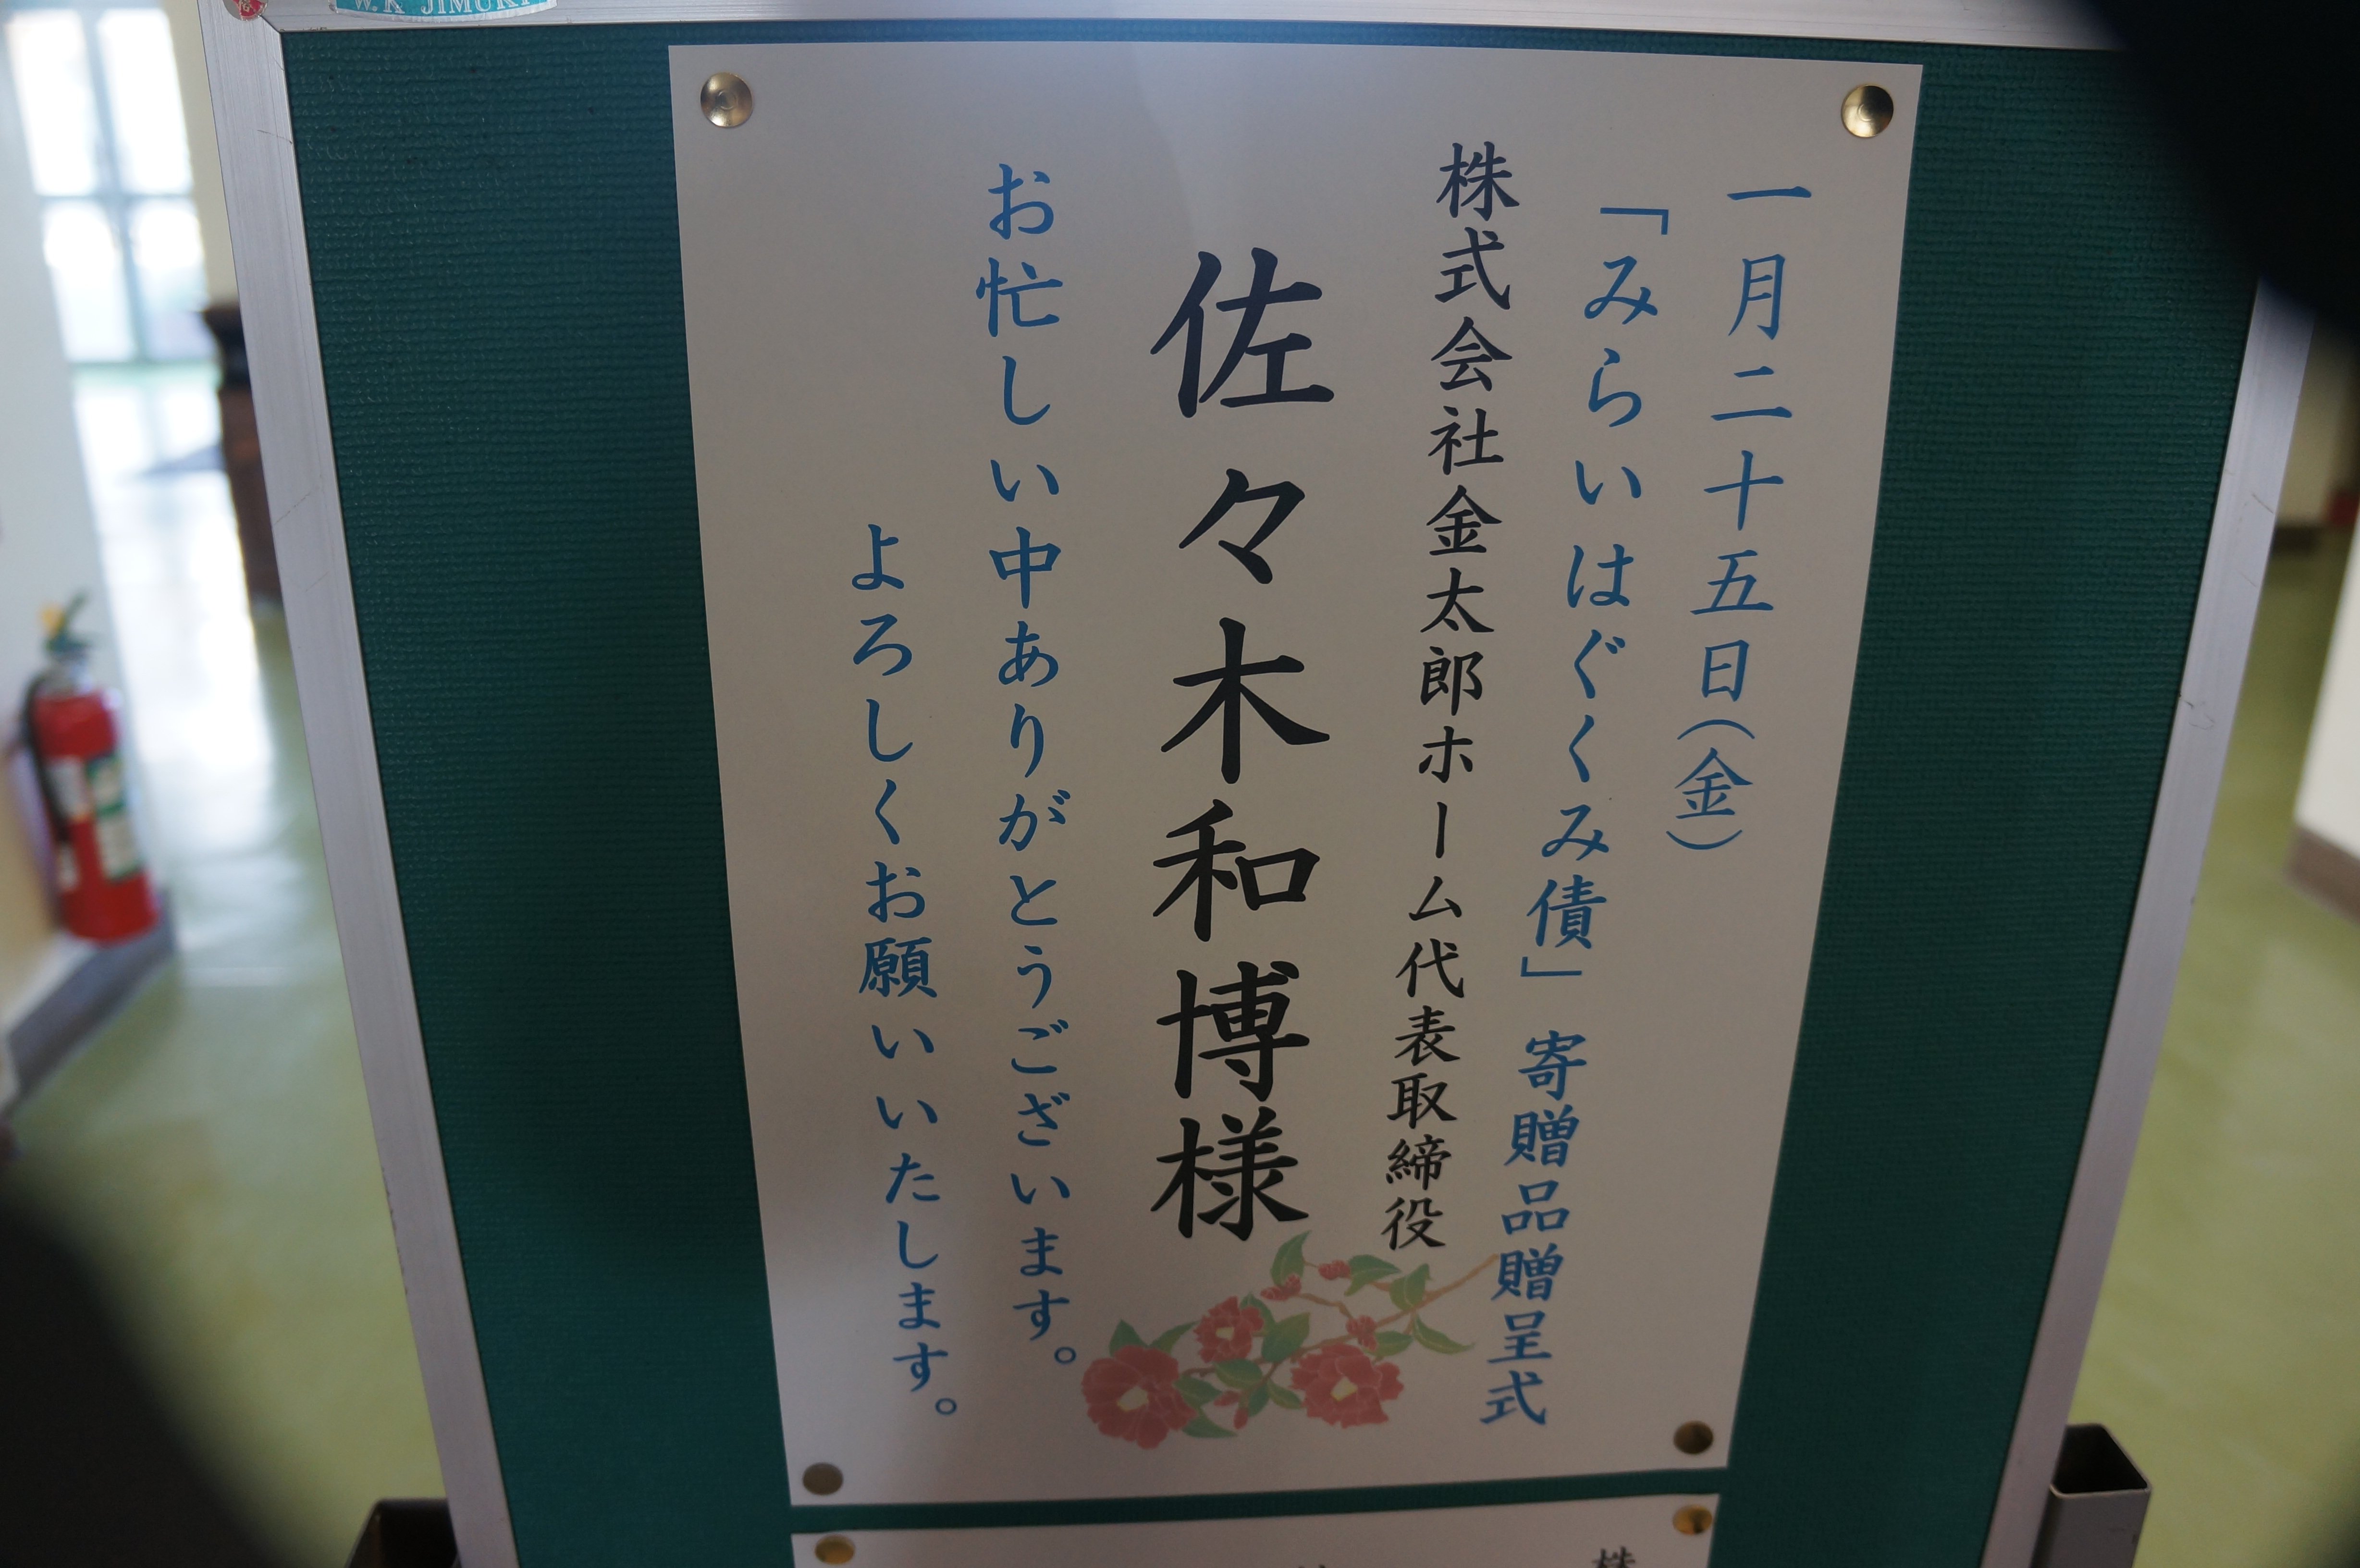 W.K JIMUKI
一月二十五日(金)
「みらいはぐくみ債」 寄贈品贈呈式
株式会社金太郎ホーム代表取締役
佐々木和博様
お忙しい中ありがとうございます。
よろしくお願いいたします。
株